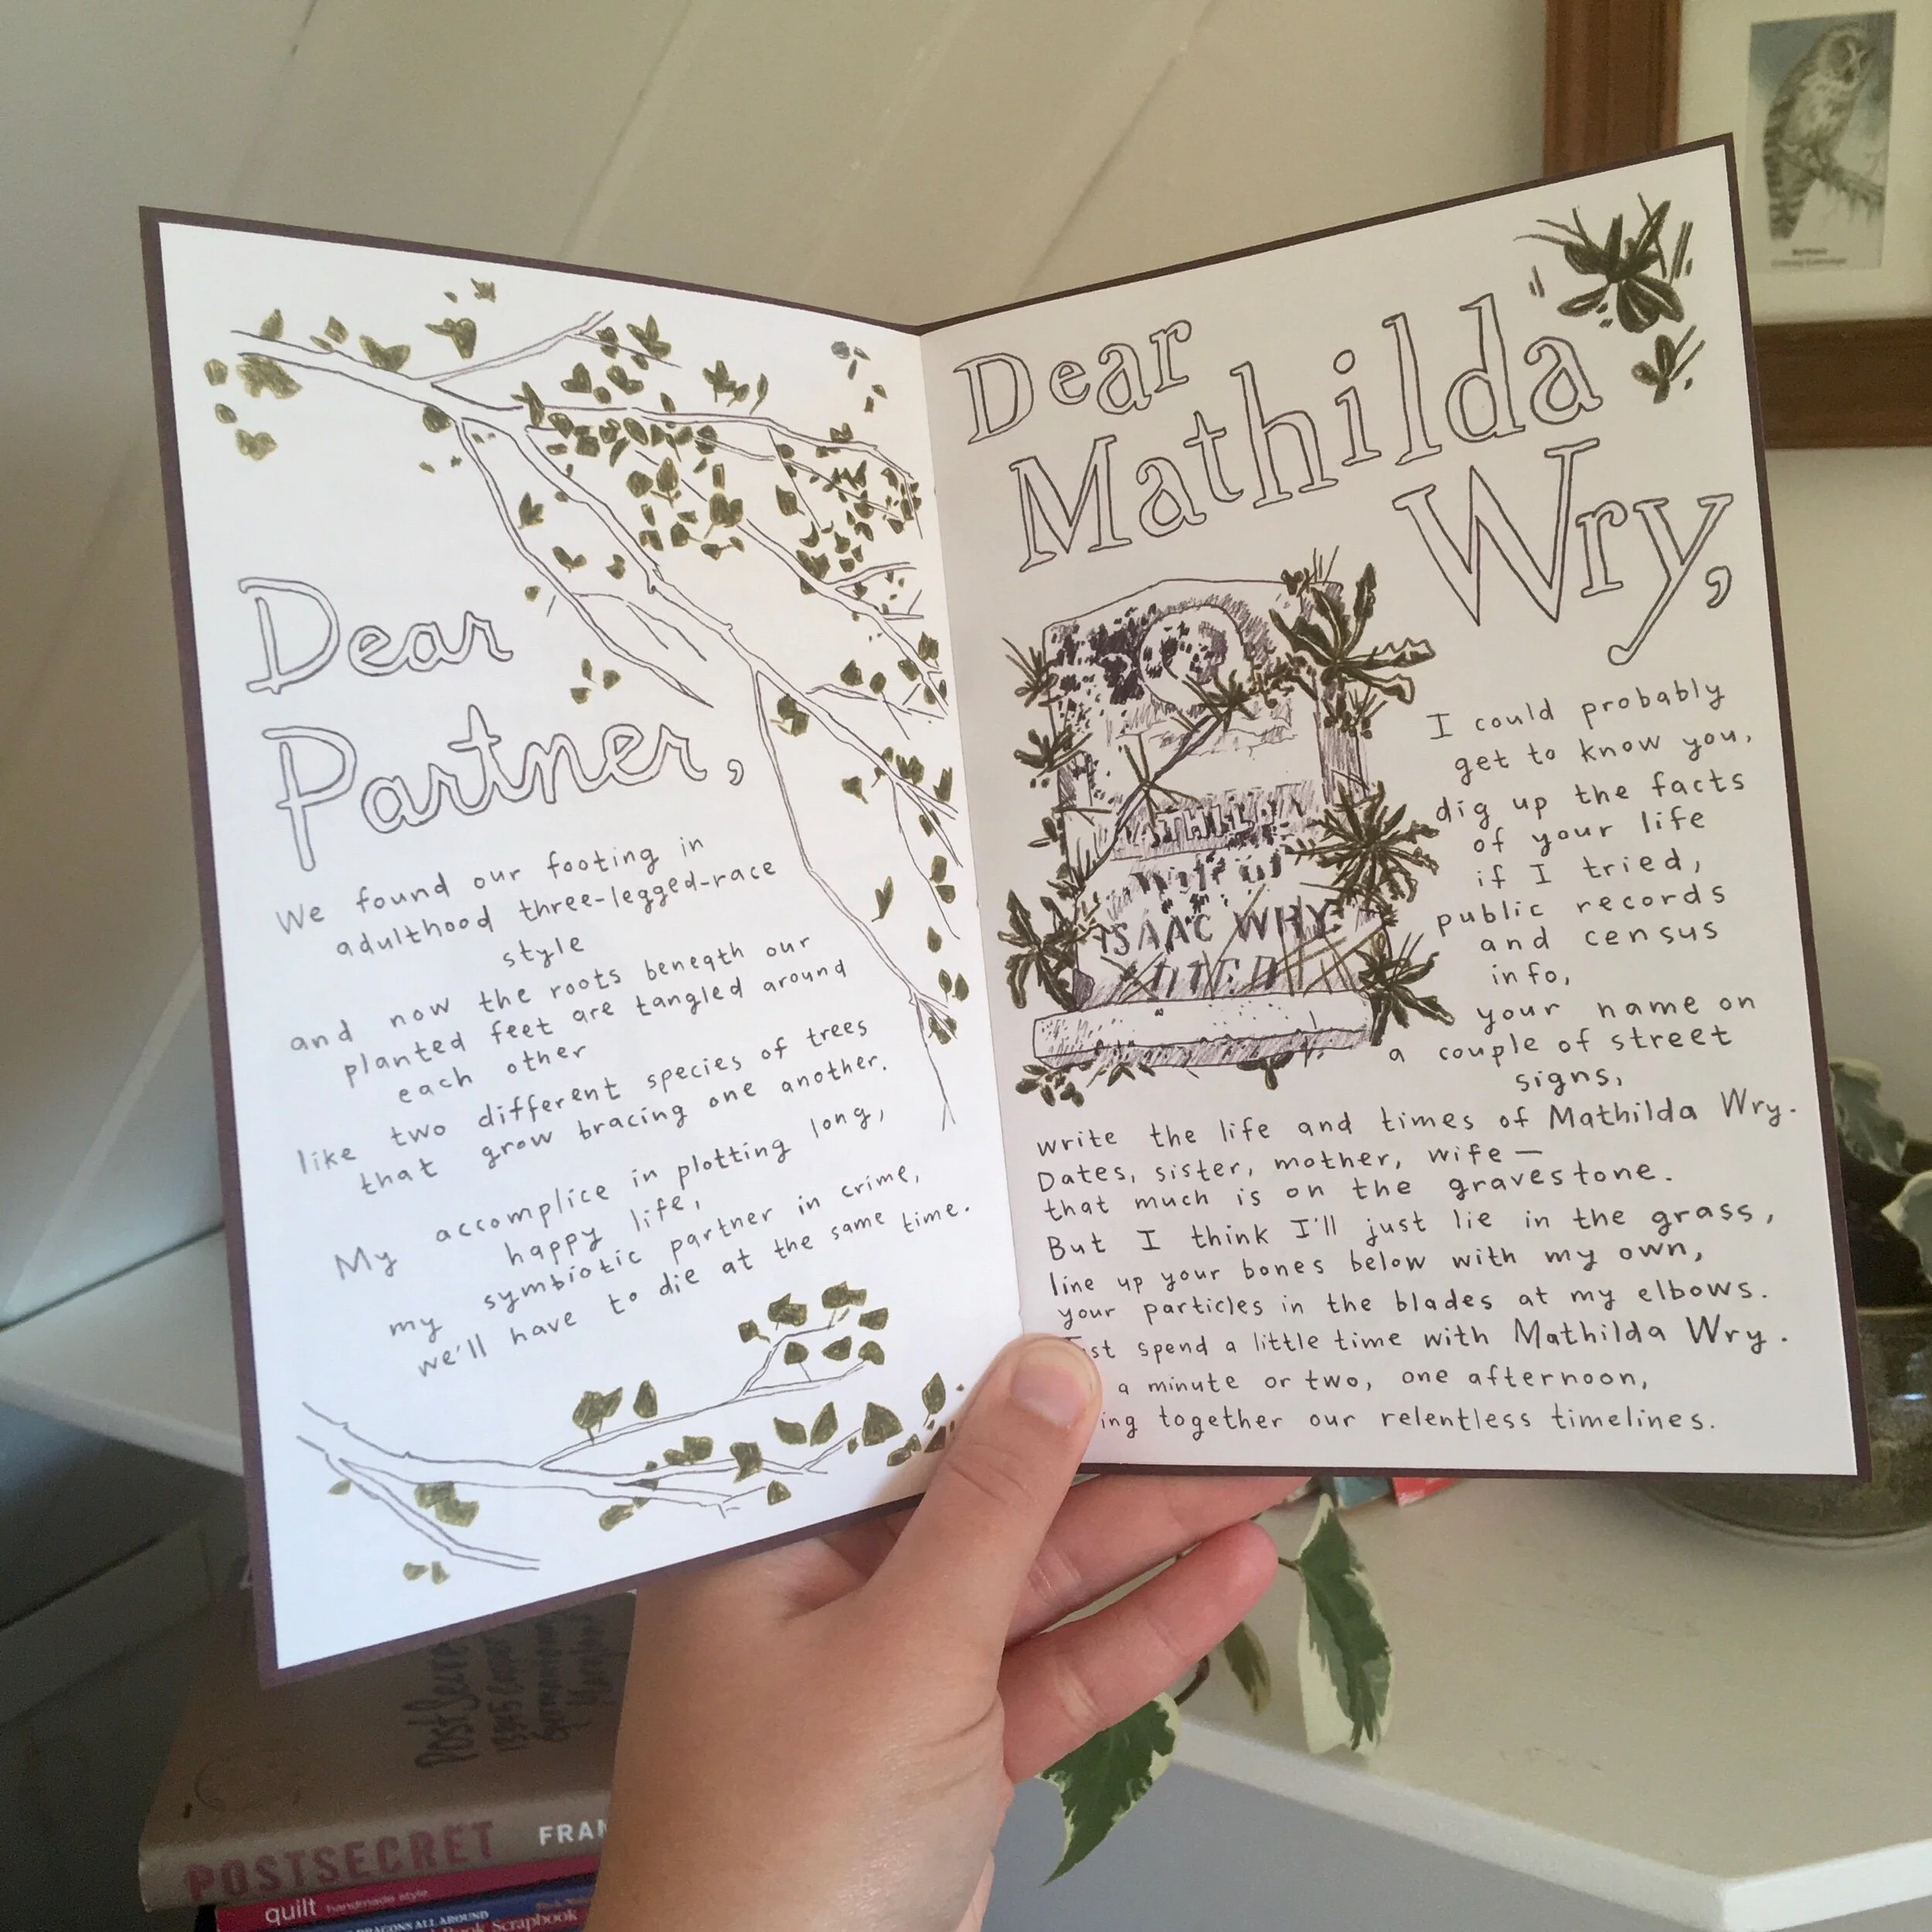 Dear
Partner,
We found our footing in
adulthood three-legged-race
style
and now the roots beneath our
planted feet are tangled around
each other
like two different species of trees
that grow bracing one another.
My accomplice in plotting long,
happy life,
my symbiotic partner in crime,
we'll have to die at the same time.
Dear
Mathilda
Wry,
ATHILDA
Wife of
ISAAC WRY
I could probably
get to know you,
dig up the facts
of your life
if I tried,
public records
and census
info,
your name on
a couple of street
signs,
write the life and times of Mathilda Wry.
Dates, sister, mother, wife—
that much is on the gravestone.
But I think I'll just lie in the grass,
line up your bones below with my own,
your particles in the blades at my elbows.
spend a little time with Mathilda Wry.
a minute or two, one afternoon,
ing together our relentless timelines.
PostSecret
13345
Germantown
Maryland
POSTSECRET FRAN
quilt handmade style
DRAGONS ALL AROUND
Scrapbook